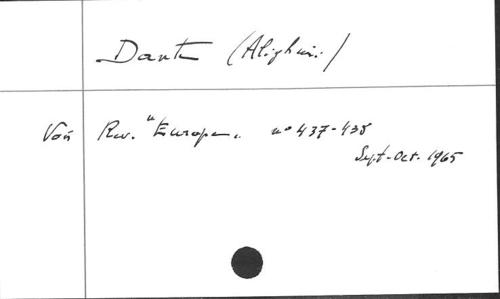 Dante (Alighieri)
Voir Rev. "Europe" n° 437-438
Sept-Oct. 1965